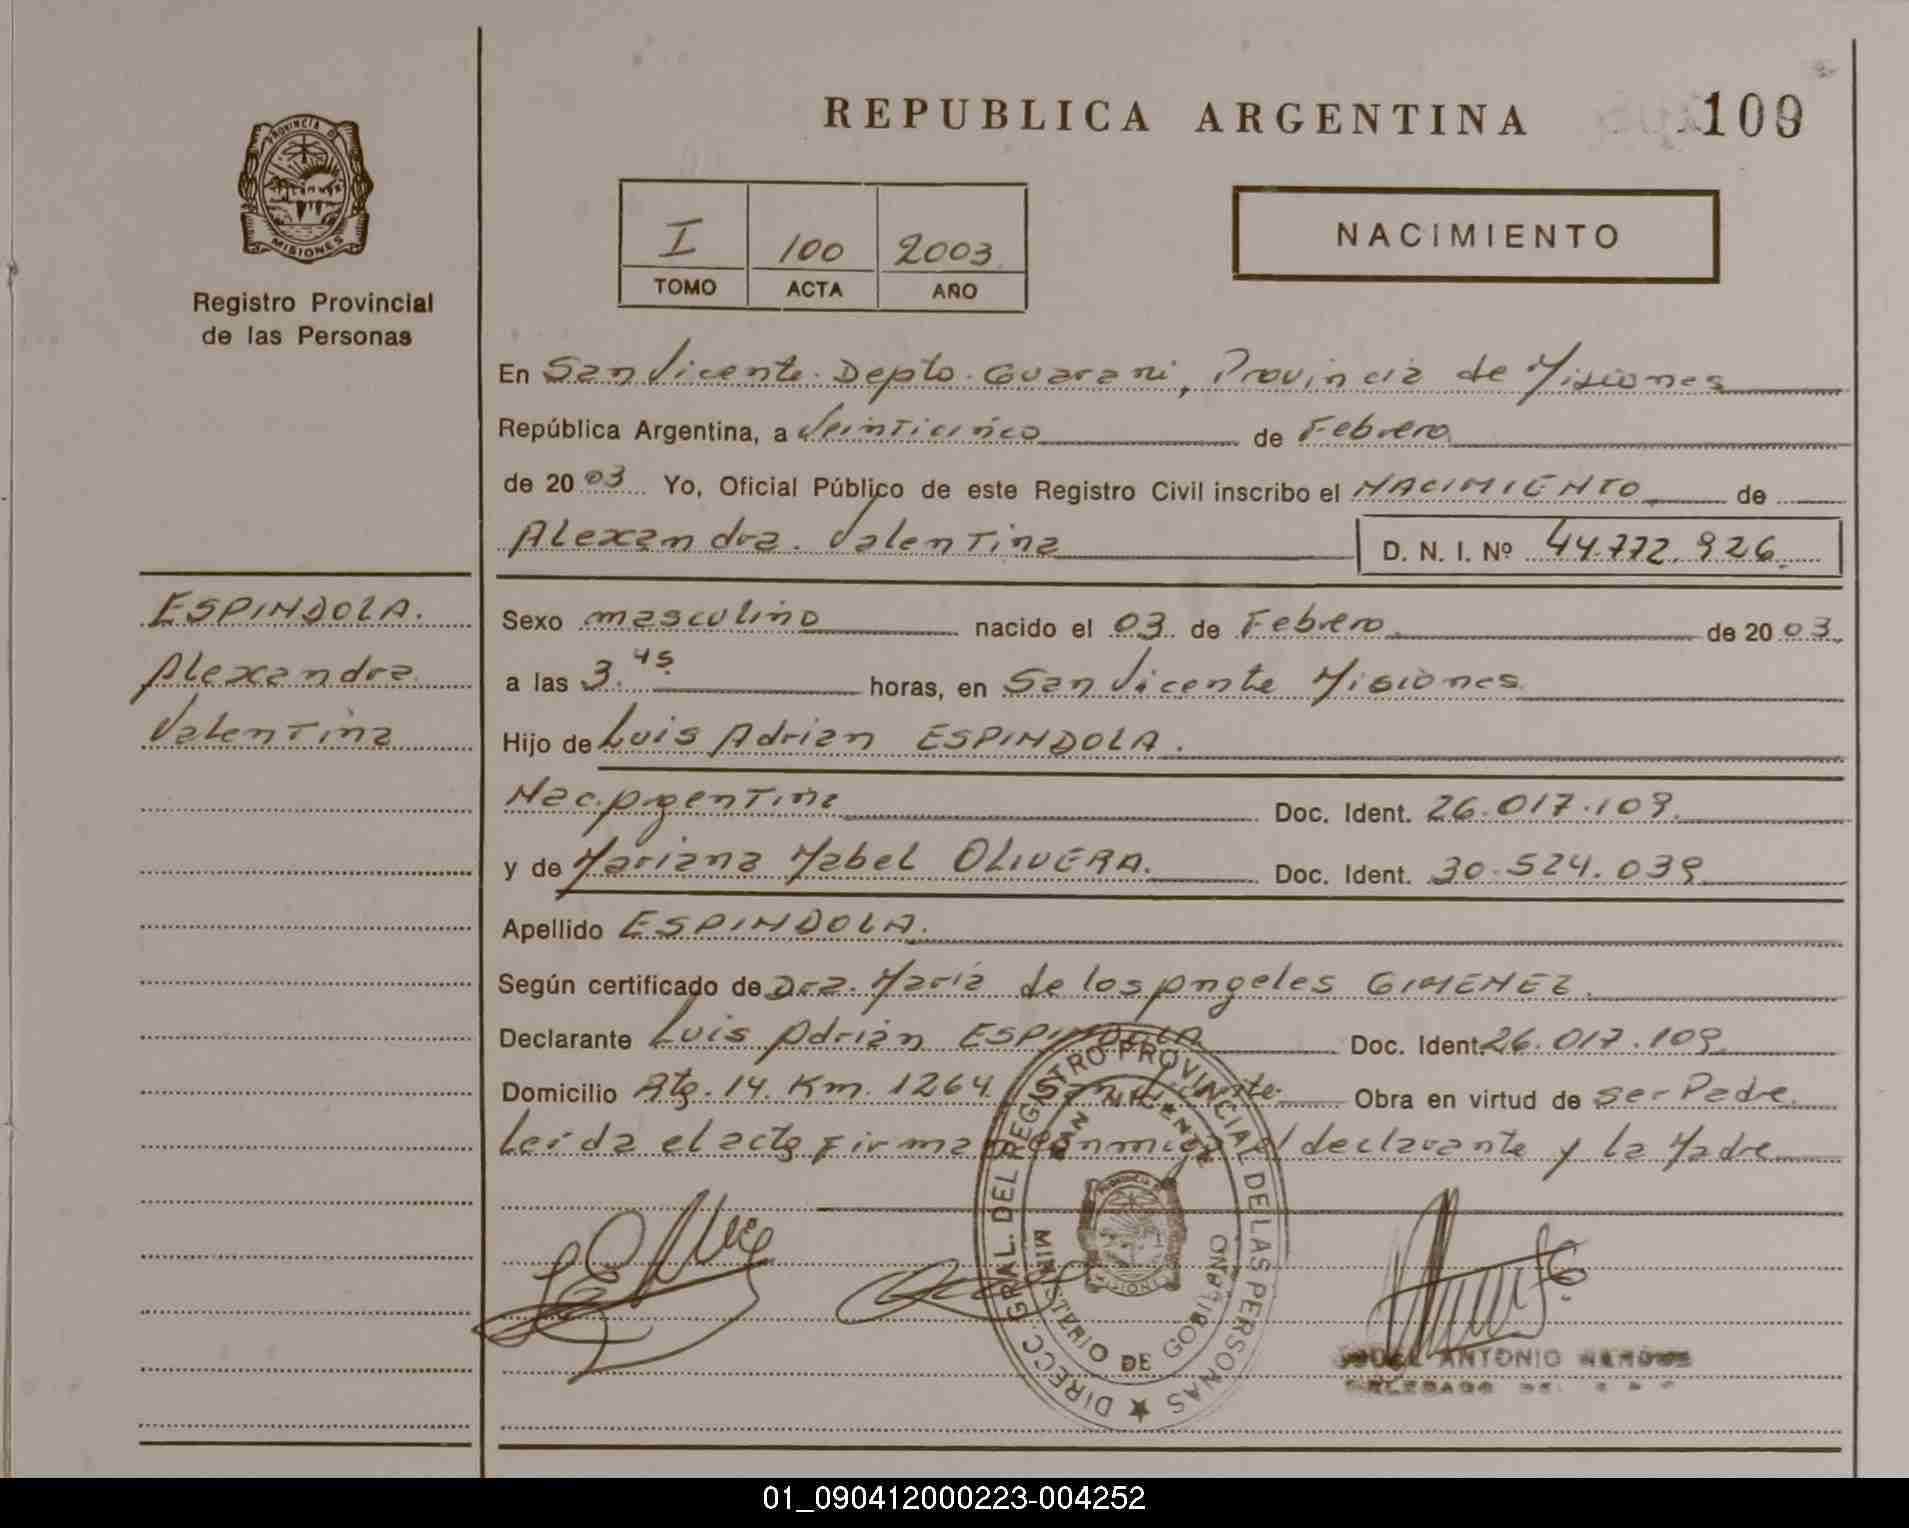 PROVINCIA DE
MISIONES
Registro Provincial
de las Personas
REPUBLICA ARGENTINA
109
I 100 2003
TOMO ACTA AÑO
NACIMIENTO
En San Vicente. Depto. Guarani, Provincia de Misiones
República Argentina, a Veinticinco de Febrero
de 2003 Yo, Oficial Público de este Registro Civil inscribo el NACIMIENTO de
Alexandra. Valentina D. N. I. Nº 44.772.926
ESPINDOLA.
Alexandra
Valentina
Sexo masculino nacido el 03 de Febrero de 2003
a las 3.45 horas, en San Vicente Misiones
Hijo de Luis Adrian ESPINDOLA.
Nac. Argentina Doc. Ident. 26.017.109
y de Mariana Mabel OLIVERA. Doc. Ident. 30.524.039
Apellido ESPINDOLA.
Según certificado de Dra. Maria de los Angeles GIMENEZ.
Declarante Luis Adrián ESPINDOLA Doc. Ident. 26.017.109
Domicilio Km. 1264 San Vicente Obra en virtud de ser Padre.
Leída el acta firman conmigo el declarante y la Madre
DIRECC. GRAL. DEL REGISTRO PROVINCIAL DE LAS PERSONAS
SAN VICENTE
MINISTERIO DE GOBIERNO
PROVINCIA DE
MISIONES
ANTONIO
DELEGADO
01_090412000223-004252